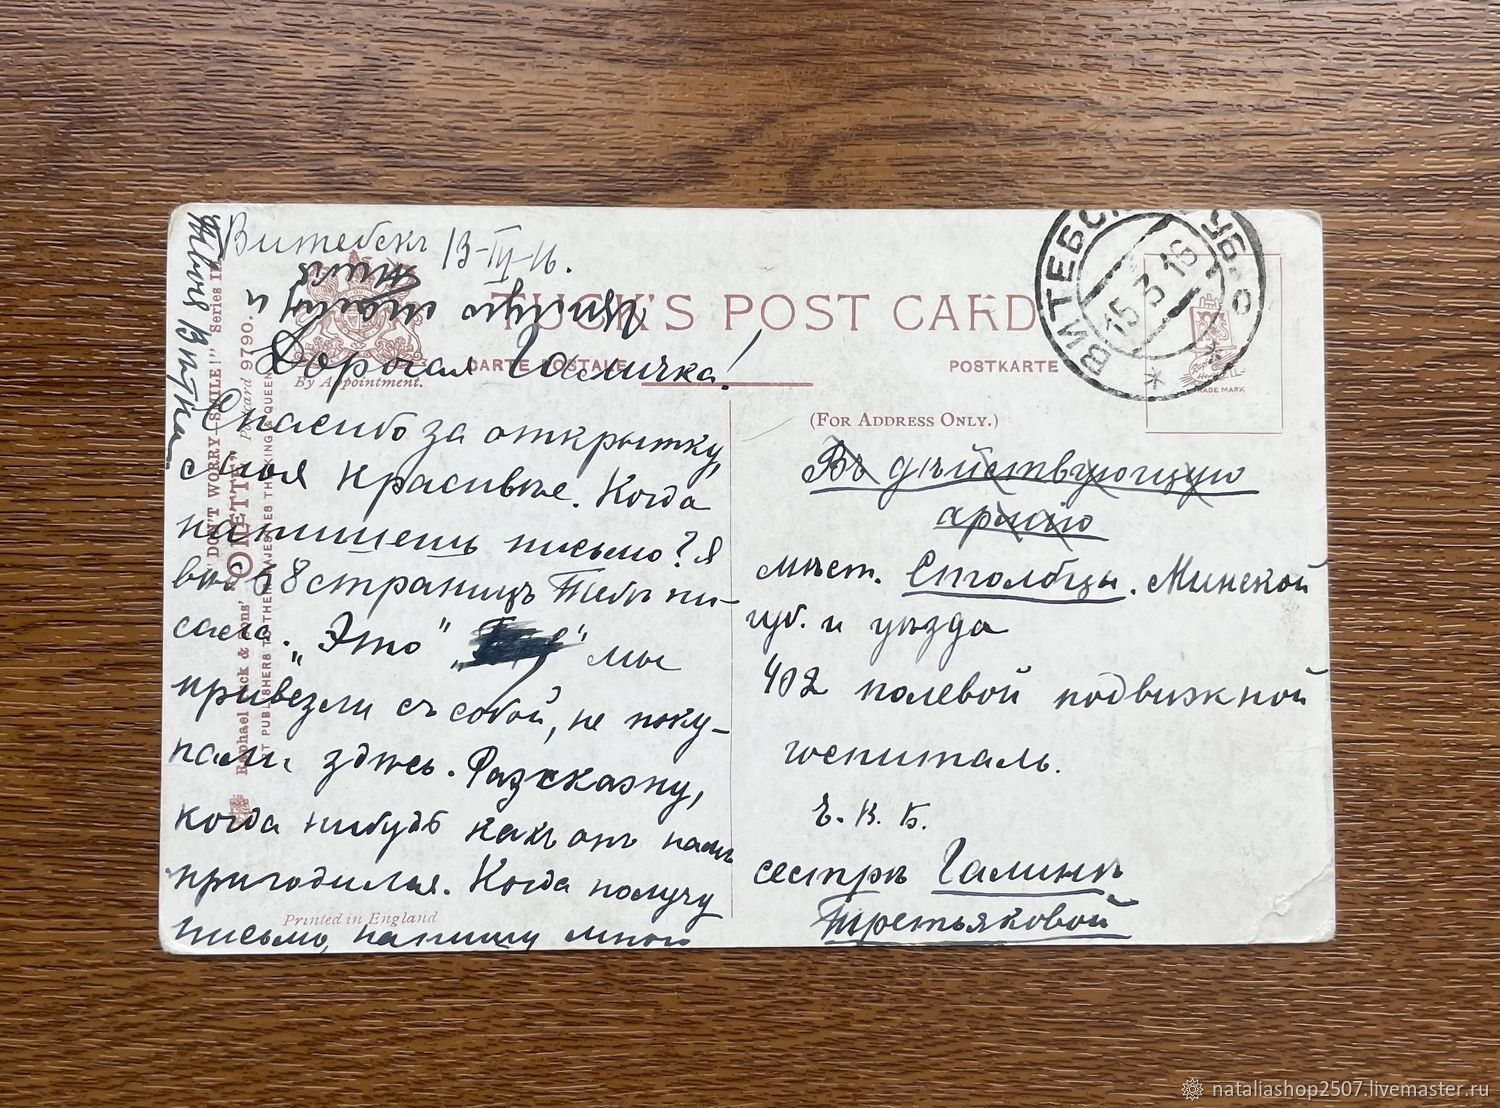 Витебскъ 13-III-16.
TUCK'S POST CARD
CARTE POSTALE
POSTKARTE
By Appointment.
(FOR ADDRESS ONLY.)
TRADE MARK
ВИТЕБСК ГУБ.
15 3 16
Дорогая Галичка!
Спасибо за открытку,
моя красивѣе. Когда
напишешь письмо? Я
8 страницъ Тебѣ пи-
сала. „Это" мы
привезли съ собой, не поку-
пали здѣсь. Разскажу,
когда нибудь какъ онъ намъ
пригодился. Когда получу
письмо, напишу много
и
Витка
Въ дѣйствующую
армію
мѣст. Столбцы. Минской
губ. и уѣзда
402 полевой подвижной
госпиталь.
Е. В. Б.
сестрѣ Галинѣ
Третьяковой
"DON'T WORRY—SMILE!" Series II.
Raphael Tuck & Sons' "OILETTE" Postcard 9790.
ART PUBLISHERS TO THEIR MAJESTIES THE KING & QUEEN
Printed in England
nataliashop2507.livemaster.ru